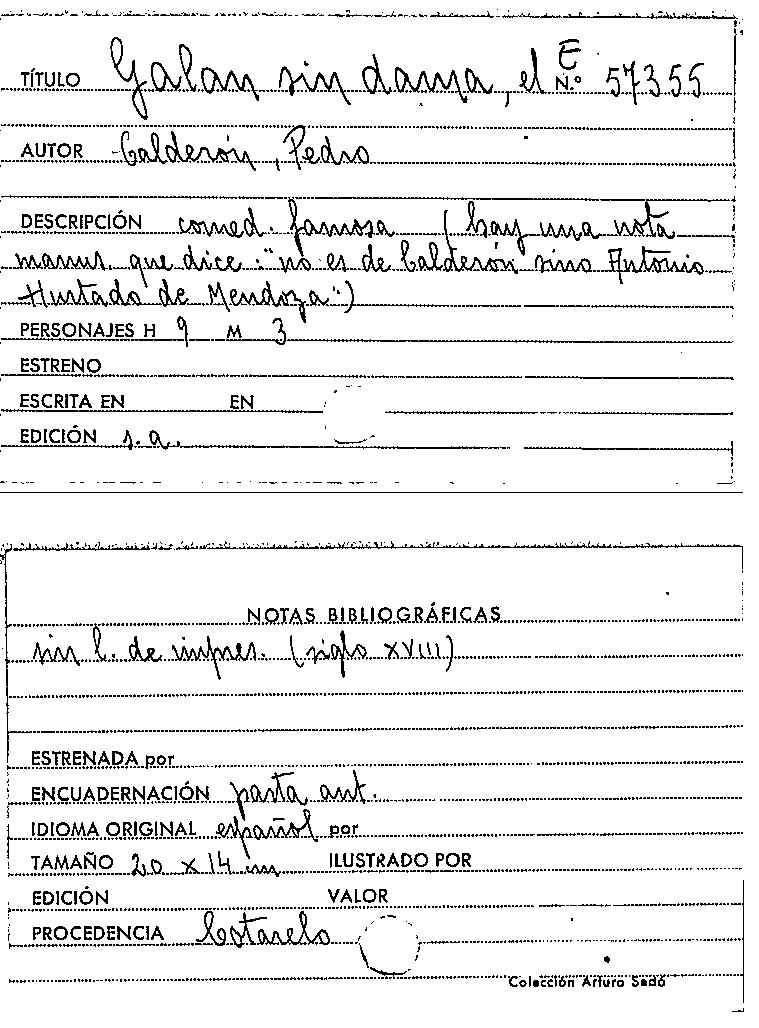 TÍTULO Galan sin dama, el E N.º 57355
AUTOR Calderón, Pedro
DESCRIPCIÓN comed. famosa (hay una nota
manus. que dice: "no es de Calderón sino Antonio
Hurtado de Mendoza")
PERSONAJES H 9 M 3
ESTRENO
ESCRITA EN EN
EDICIÓN s.a.
NOTAS BIBLIOGRÁFICAS
sin l. de impres. (siglo XVIII)
ESTRENADA por
ENCUADERNACIÓN pasta ant.
IDIOMA ORIGINAL español por
TAMAÑO 20 x 14 cm ILUSTRADO POR
EDICIÓN VALOR
PROCEDENCIA Cotarelo
Colección Arturo Sedó